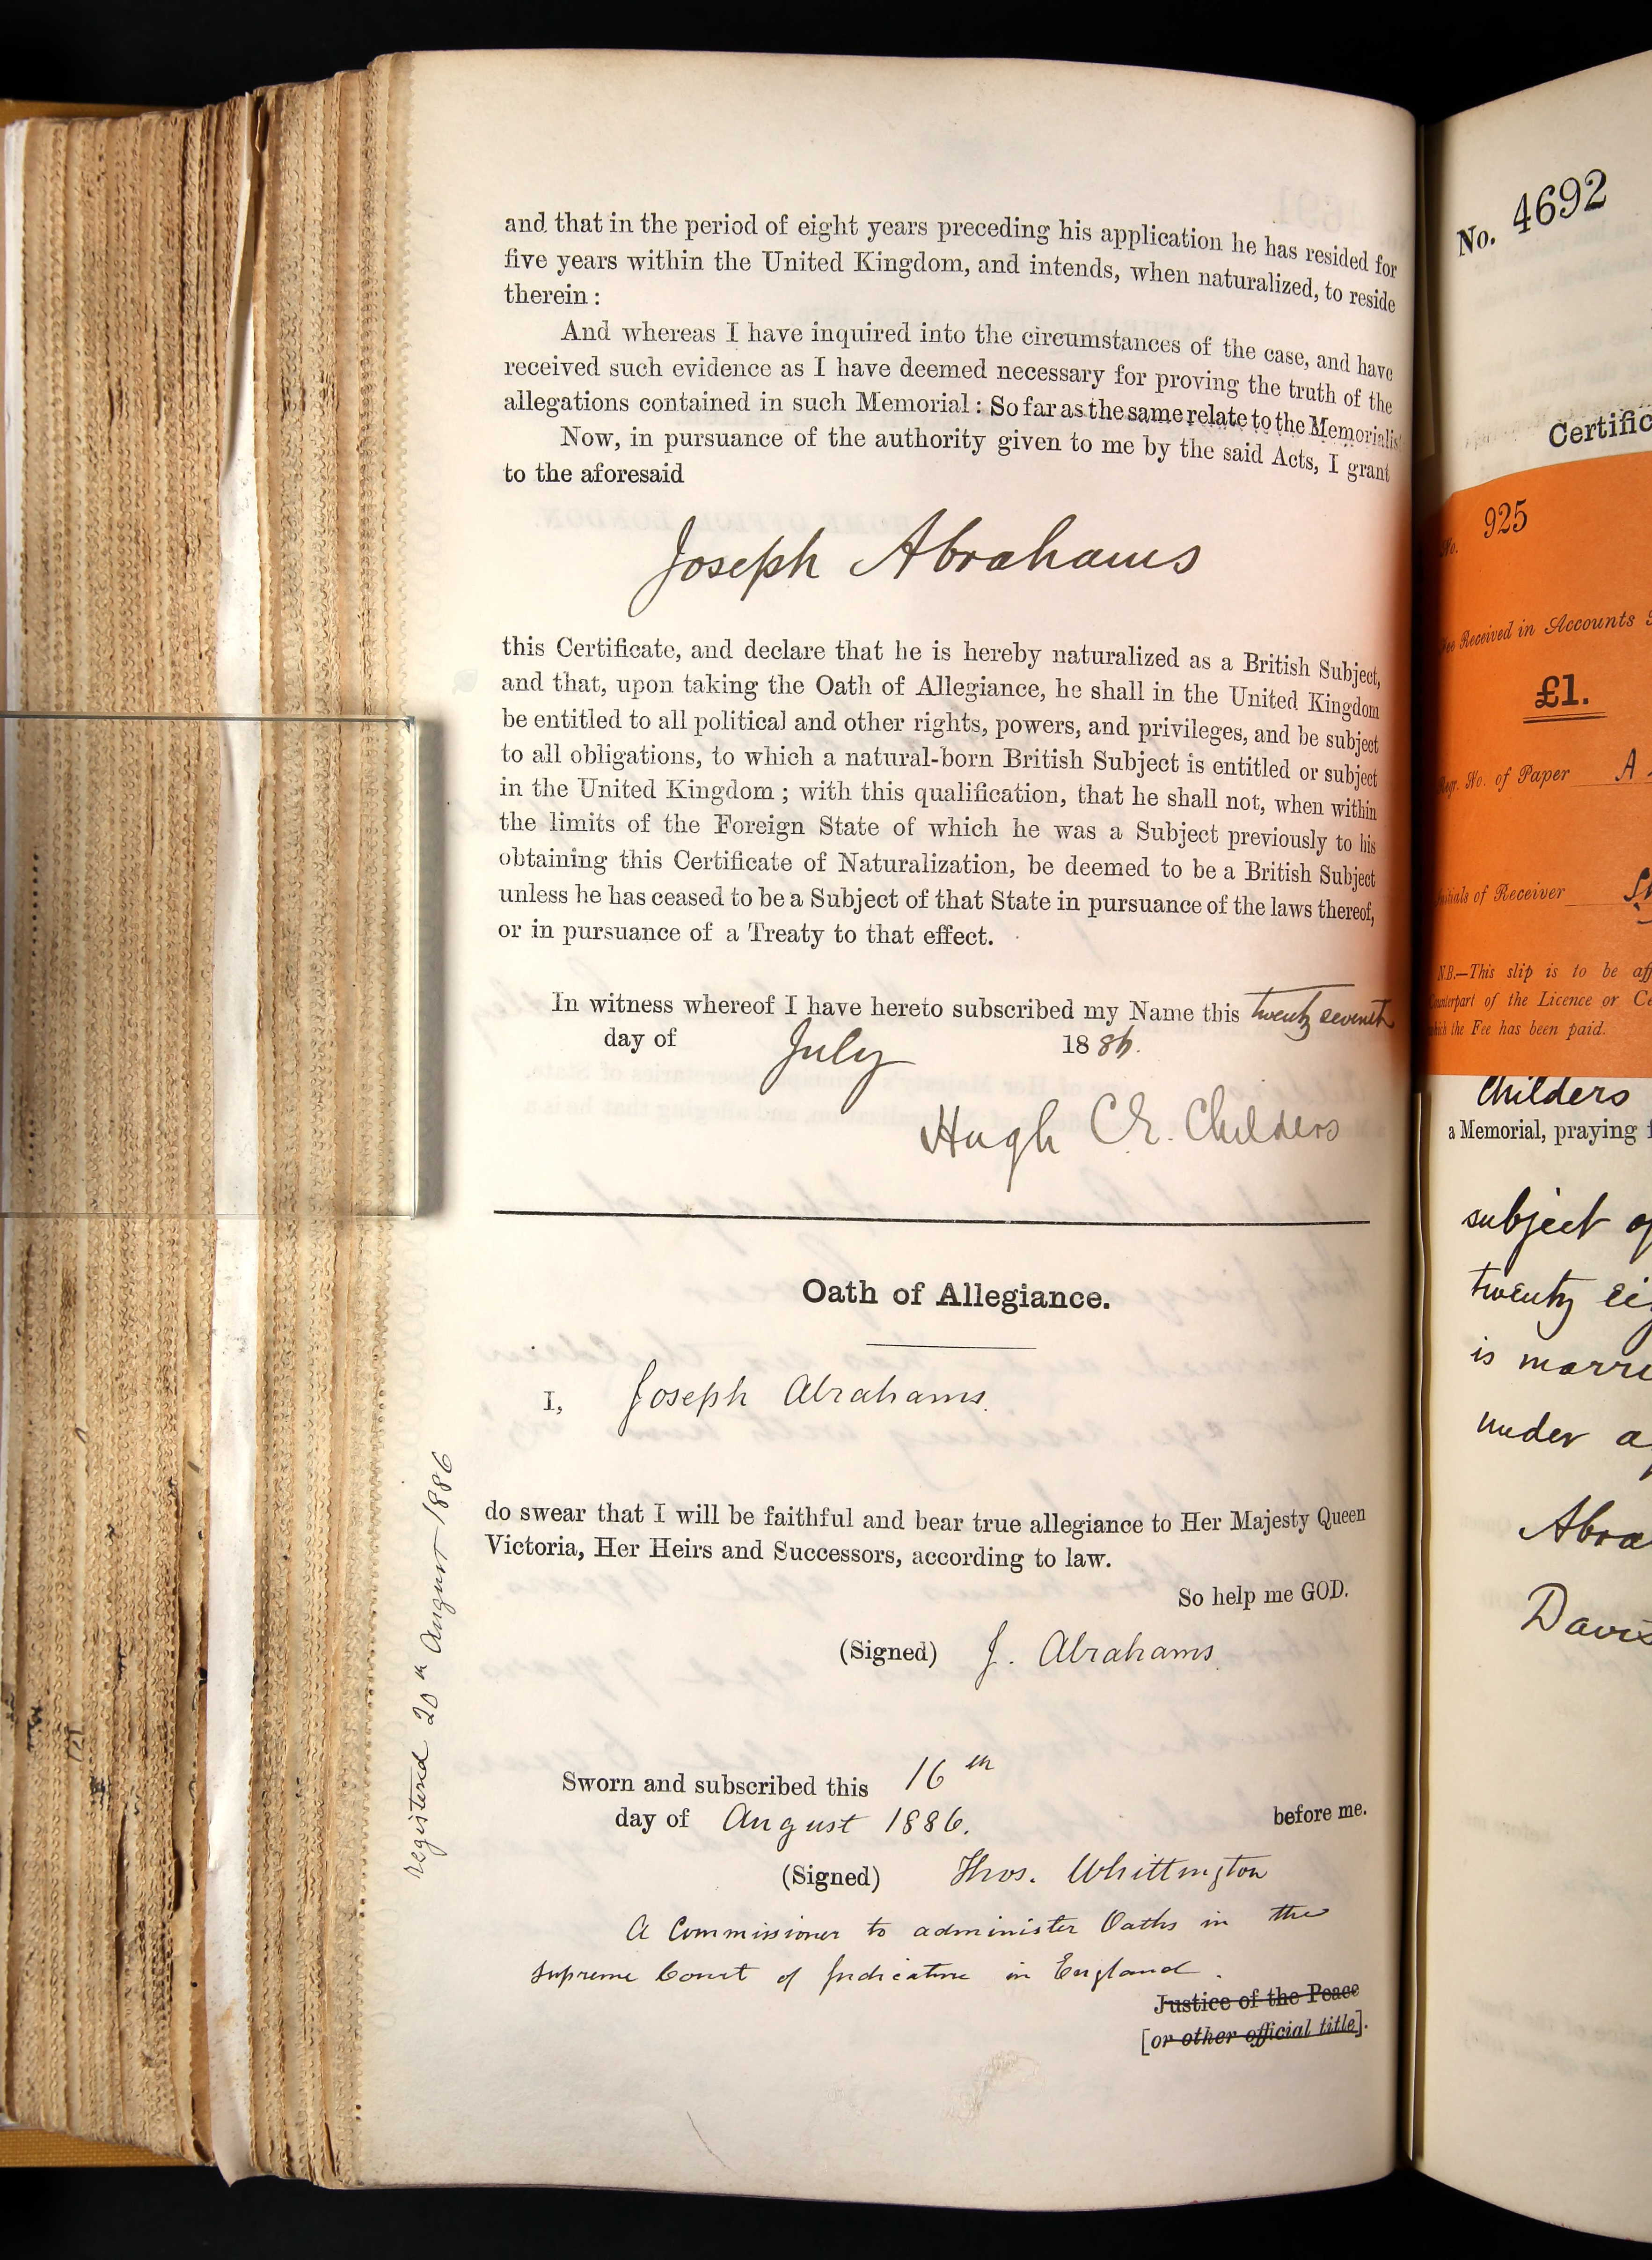 and that in the period of eight years preceding his application he has resided for
five years within the United Kingdom, and intends, when naturalized, to reside
therein :
And whereas I have inquired into the circumstances of the case, and have
received such evidence as I have deemed necessary for proving the truth of the
allegations contained in such Memorial : So far as the same relate to the Memorialis
Now, in pursuance of the authority given to me by the said Acts, I grant
to the aforesaid
Joseph Abrahams
this Certificate, and declare that he is hereby naturalized as a British Subject,
and that, upon taking the Oath of Allegiance, he shall in the United Kingdom
be entitled to all political and other rights, powers, and privileges, and be subject
to all obligations, to which a natural-born British Subject is entitled or subject
in the United Kingdom ; with this qualification, that he shall not, when within
the limits of the Foreign State of which he was a Subject previously to his
obtaining this Certificate of Naturalization, be deemed to be a British Subject
unless he has ceased to be a Subject of that State in pursuance of the laws thereof,
or in pursuance of a Treaty to that effect.
In witness whereof I have hereto subscribed my Name this twenty seventh
day of July 1886.
Hugh C. E. Childers
Oath of Allegiance.
I, Joseph Abrahams.
do swear that I will be faithful and bear true allegiance to Her Majesty Queen
Victoria, Her Heirs and Successors, according to law.
So help me GOD.
(Signed) J. Abrahams
Sworn and subscribed this 16th
day of August 1886. before me.
(Signed) Thos. Whittington
A Commissioner to administer Oaths in the
Supreme Court of Judicature in England.
Justice of the Peace
[or other official title].
Registered 20th August 1886
No. 4692
Certific
No. 925
Fee Received in Accounts
£1.
Regr. No. of Paper A
Initials of Receiver
N.B.—This slip is to be aff
Counterpart of the Licence or Ce
which the Fee has been paid.
Childers
a Memorial, praying f
subject of
twenty ei
is marri
under a
Abra
Davi